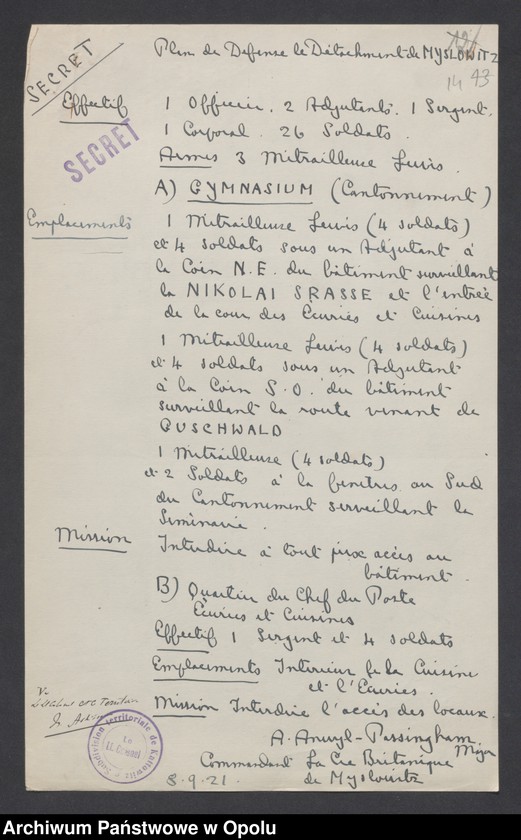 Plan de Defense le Détachment de MYSLOWITZ
14 43
SECRET
Effectif 1 Officier. 2 Adjutants. 1 Sergent.
1 Corporal. 26 Soldats.
SECRET
Armes 3 Mitrailleuse Lewis.
A) GYMNASIUM (Cantonnement)
Emplacements 1 Mitrailleuse Lewis (4 soldats)
et 4 soldats sous un Adjutant à
la Coin N.E. du bâtiment surveillant
la NIKOLAI SRASSE et l'entrée
de la cour des Ecuries et Cuisines
1 Mitrailleuse Lewis (4 soldats)
et 4 soldats sous un Adjutant
à la Coin S.O. du bâtiment
surveillant la route venant de
BUSCHWALD
1 Mitrailleuse (4 soldats)
et 2 Soldats à la fenetres au Sud
du Cantonnement surveillant la
Seminaire.
Mission Interdire à tout prix accès au
bâtiment.
B) Quartier du Chef du Poste
Ecuries et Cuisines
Effectif 1 Sergent et 4 soldats
Emplacements Interieur de la Cuisine
et l'Ecuries.
Mission Interdire l'accès des locaux.
Vu
Le
Subdivision territoriale de Kattowitz
Le Lt. Colonel
A. Anwyl-Passingham
Major
Commandant La Cie Britanique
de Myslowitz
8.9.21.
Archiwum Państwowe w Opolu